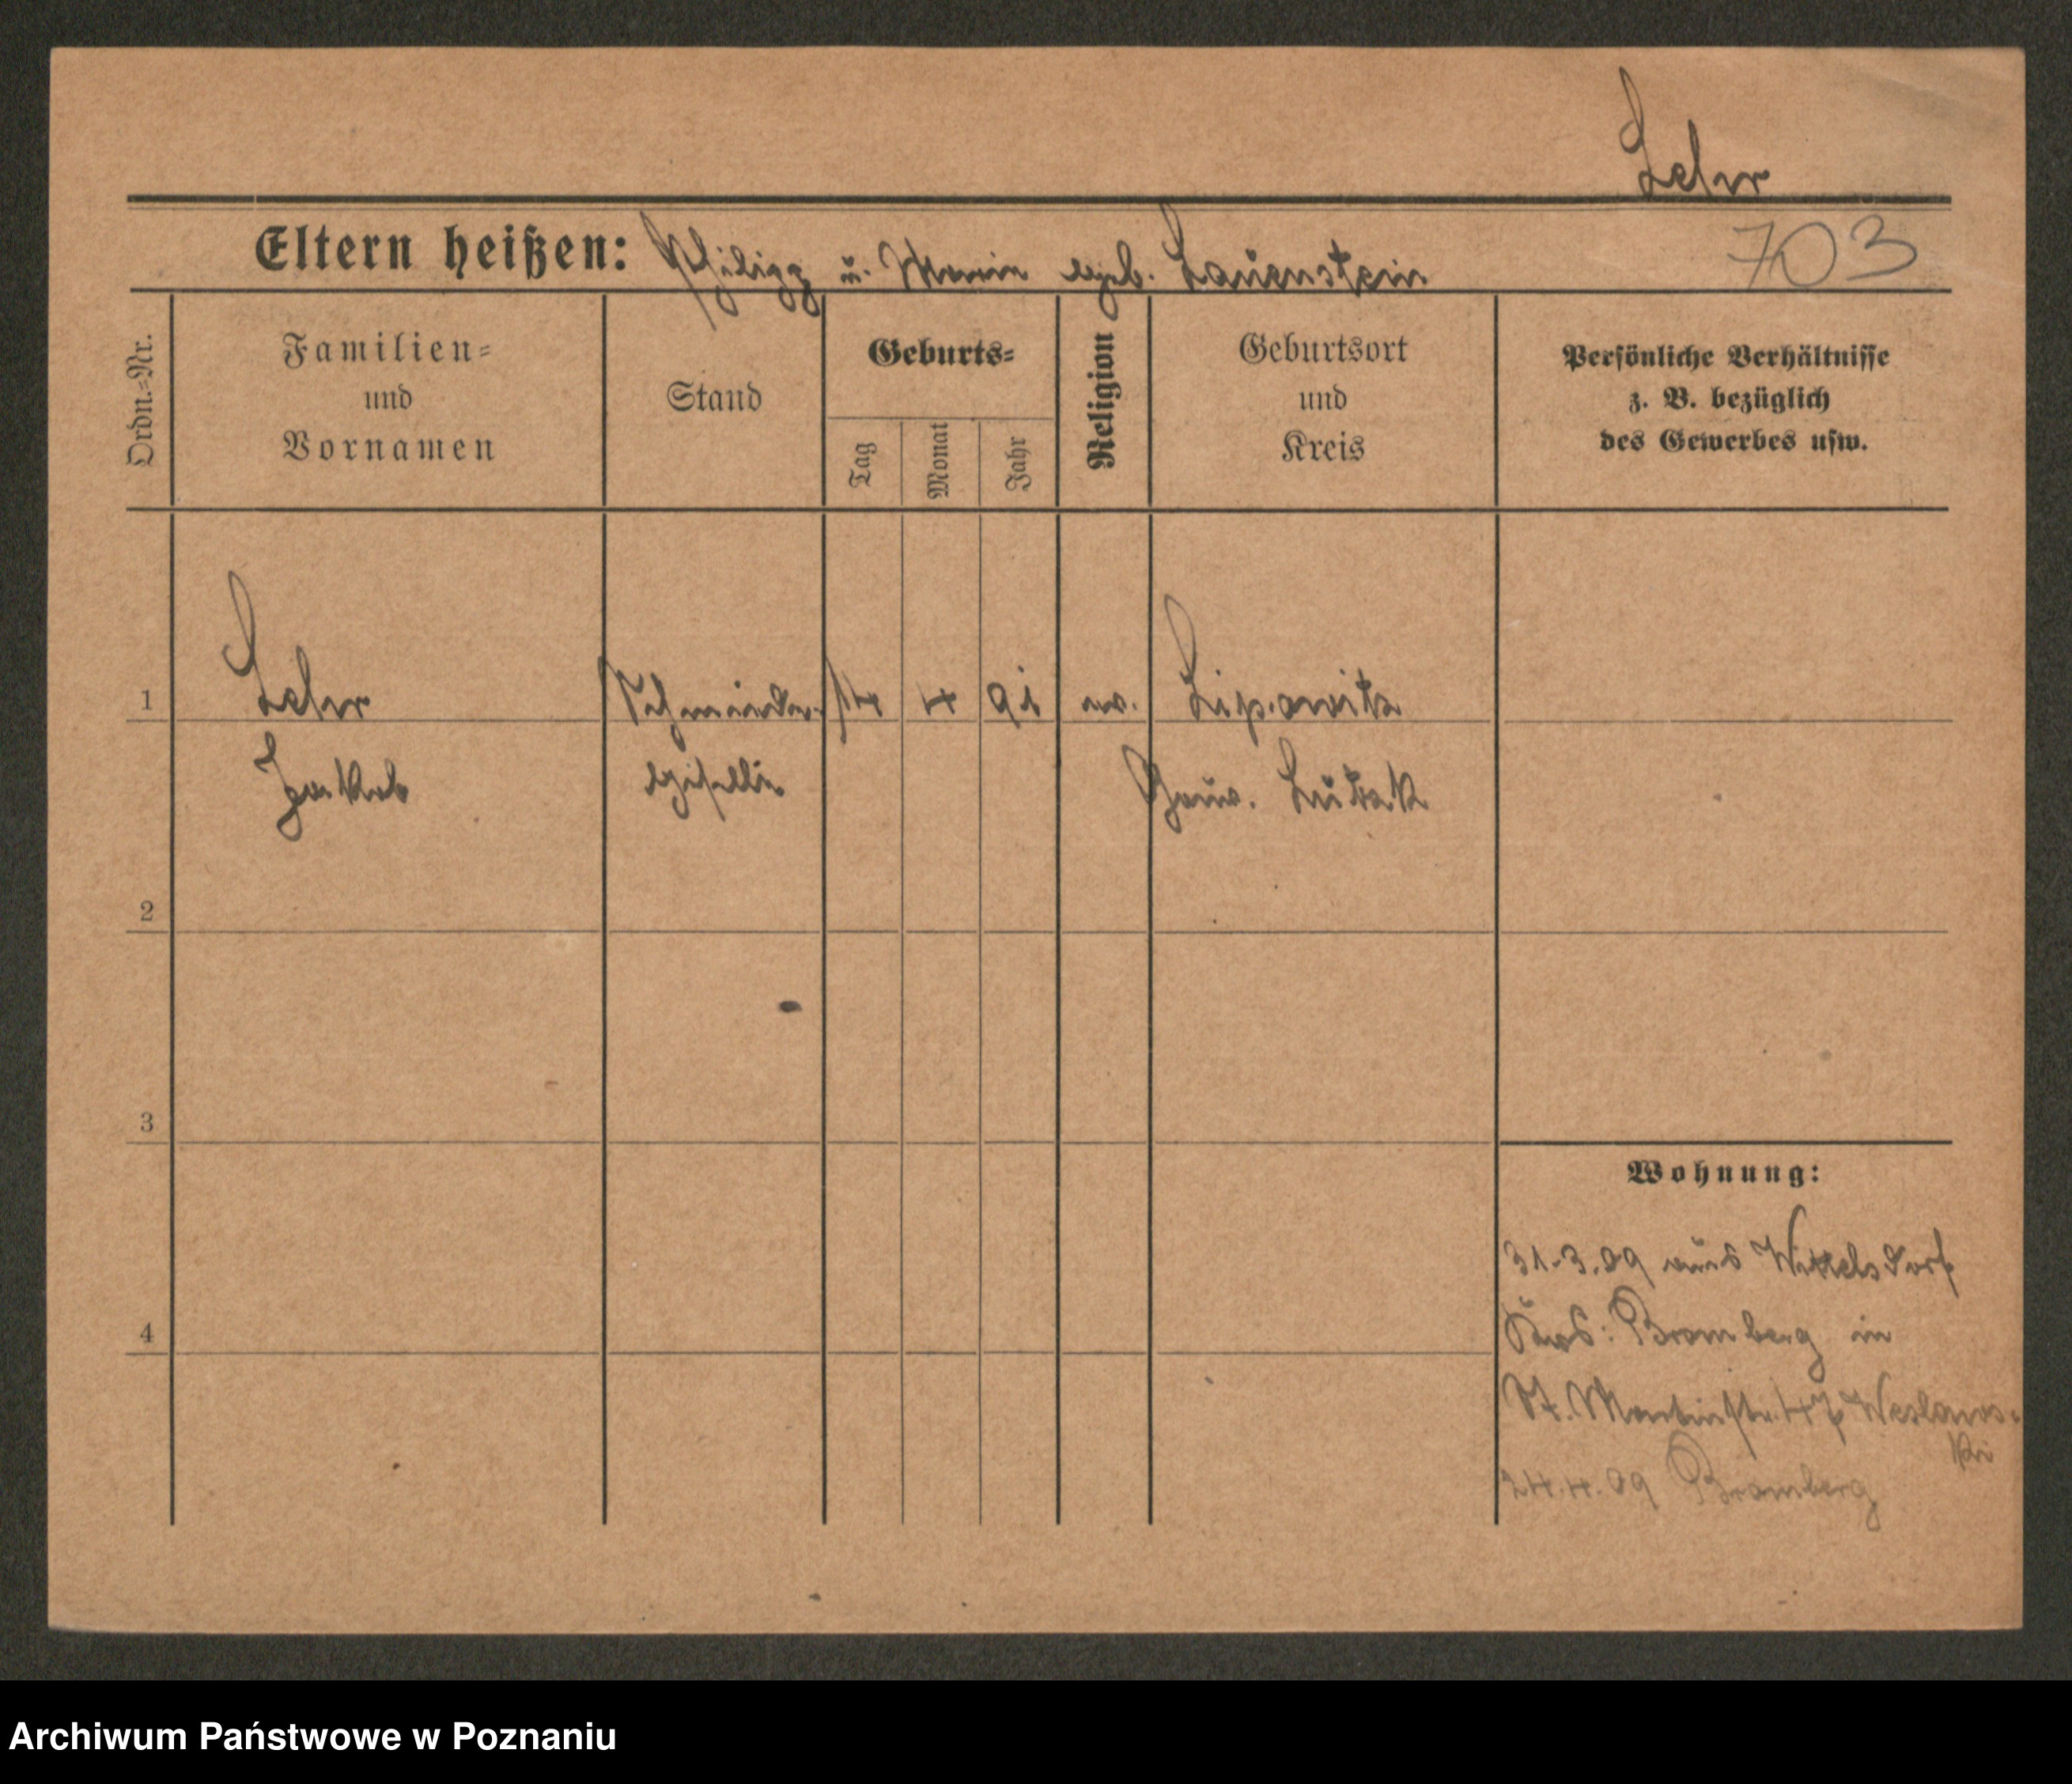 Lehr
Eltern heißen: Philipp u. Marie geb. Lauenstein
703
Ordn.=Nr.
Familien=
und
Vornamen
Stand
Geburts=
Tag
Monat
Jahr
Religion
Geburtsort
und
Kreis
Persönliche Verhältnisse
z. B. bezüglich
des Gewerbes usw.
1 Lehr Schmiede- 14 4 91 ev. Lipowitz
Jakob Geselle Gouv. Lutzk
2
3
4
Wohnung:
31.3.09 aus Wittelsdorf
Krs: Bromberg in
St. Martinstr. 47
24.4.09 Bromberg
Archiwum Państwowe w Poznaniu